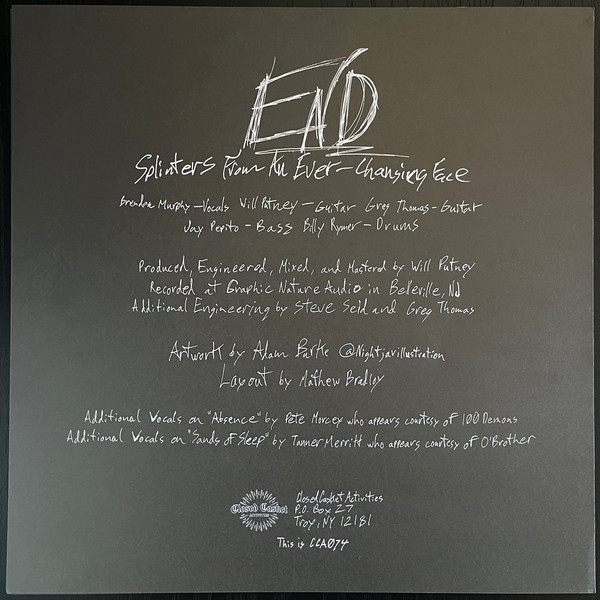 END
Splinters From An Ever-Changing Face
Brendan Murphy - Vocals Will Putney - Guitar Greg Thomas - Guitar
Jay Pepito - Bass Billy Rymer - Drums
Produced, Engineered, Mixed, and Mastered by Will Putney
Recorded at Graphic Nature Audio in Belleville, NJ
Additional Engineering by Steve Seid and Greg Thomas
Artwork by Adam Burke @Nightjarillustration
Layout by Mathew Bradley
Additional Vocals on "Absence" by Pete Morcey who appears courtesy of 100 Demons
Additional Vocals on "Sands of Sleep" by Tanner Merritt who appears courtesy of O'Brother
Closed Casket
Activities
Closed Casket Activities
P.O. Box 27
Troy, NY 12181
This is CCA074